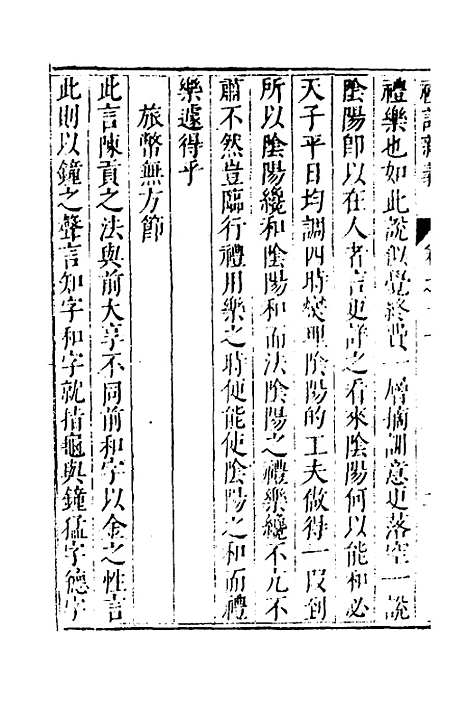 禮樂也如此說似覺終費一層摘訓意更落空一說
陰陽卽以在人者言更詳之看來陰陽何以能和必
天子平日均調四時爕理陰陽的工夫做得一段到
所以陰陽纔和陰陽和而法陰陽之禮樂纔不亢不
肅不然豈臨行禮用樂之時便能使陰陽之和而禮
樂遽得乎
旅幣無方節
此言陳貢之法與前大享不同前和字以金之性言
此則以鐘之聲言知字和字就指龜與鐘猛字德字